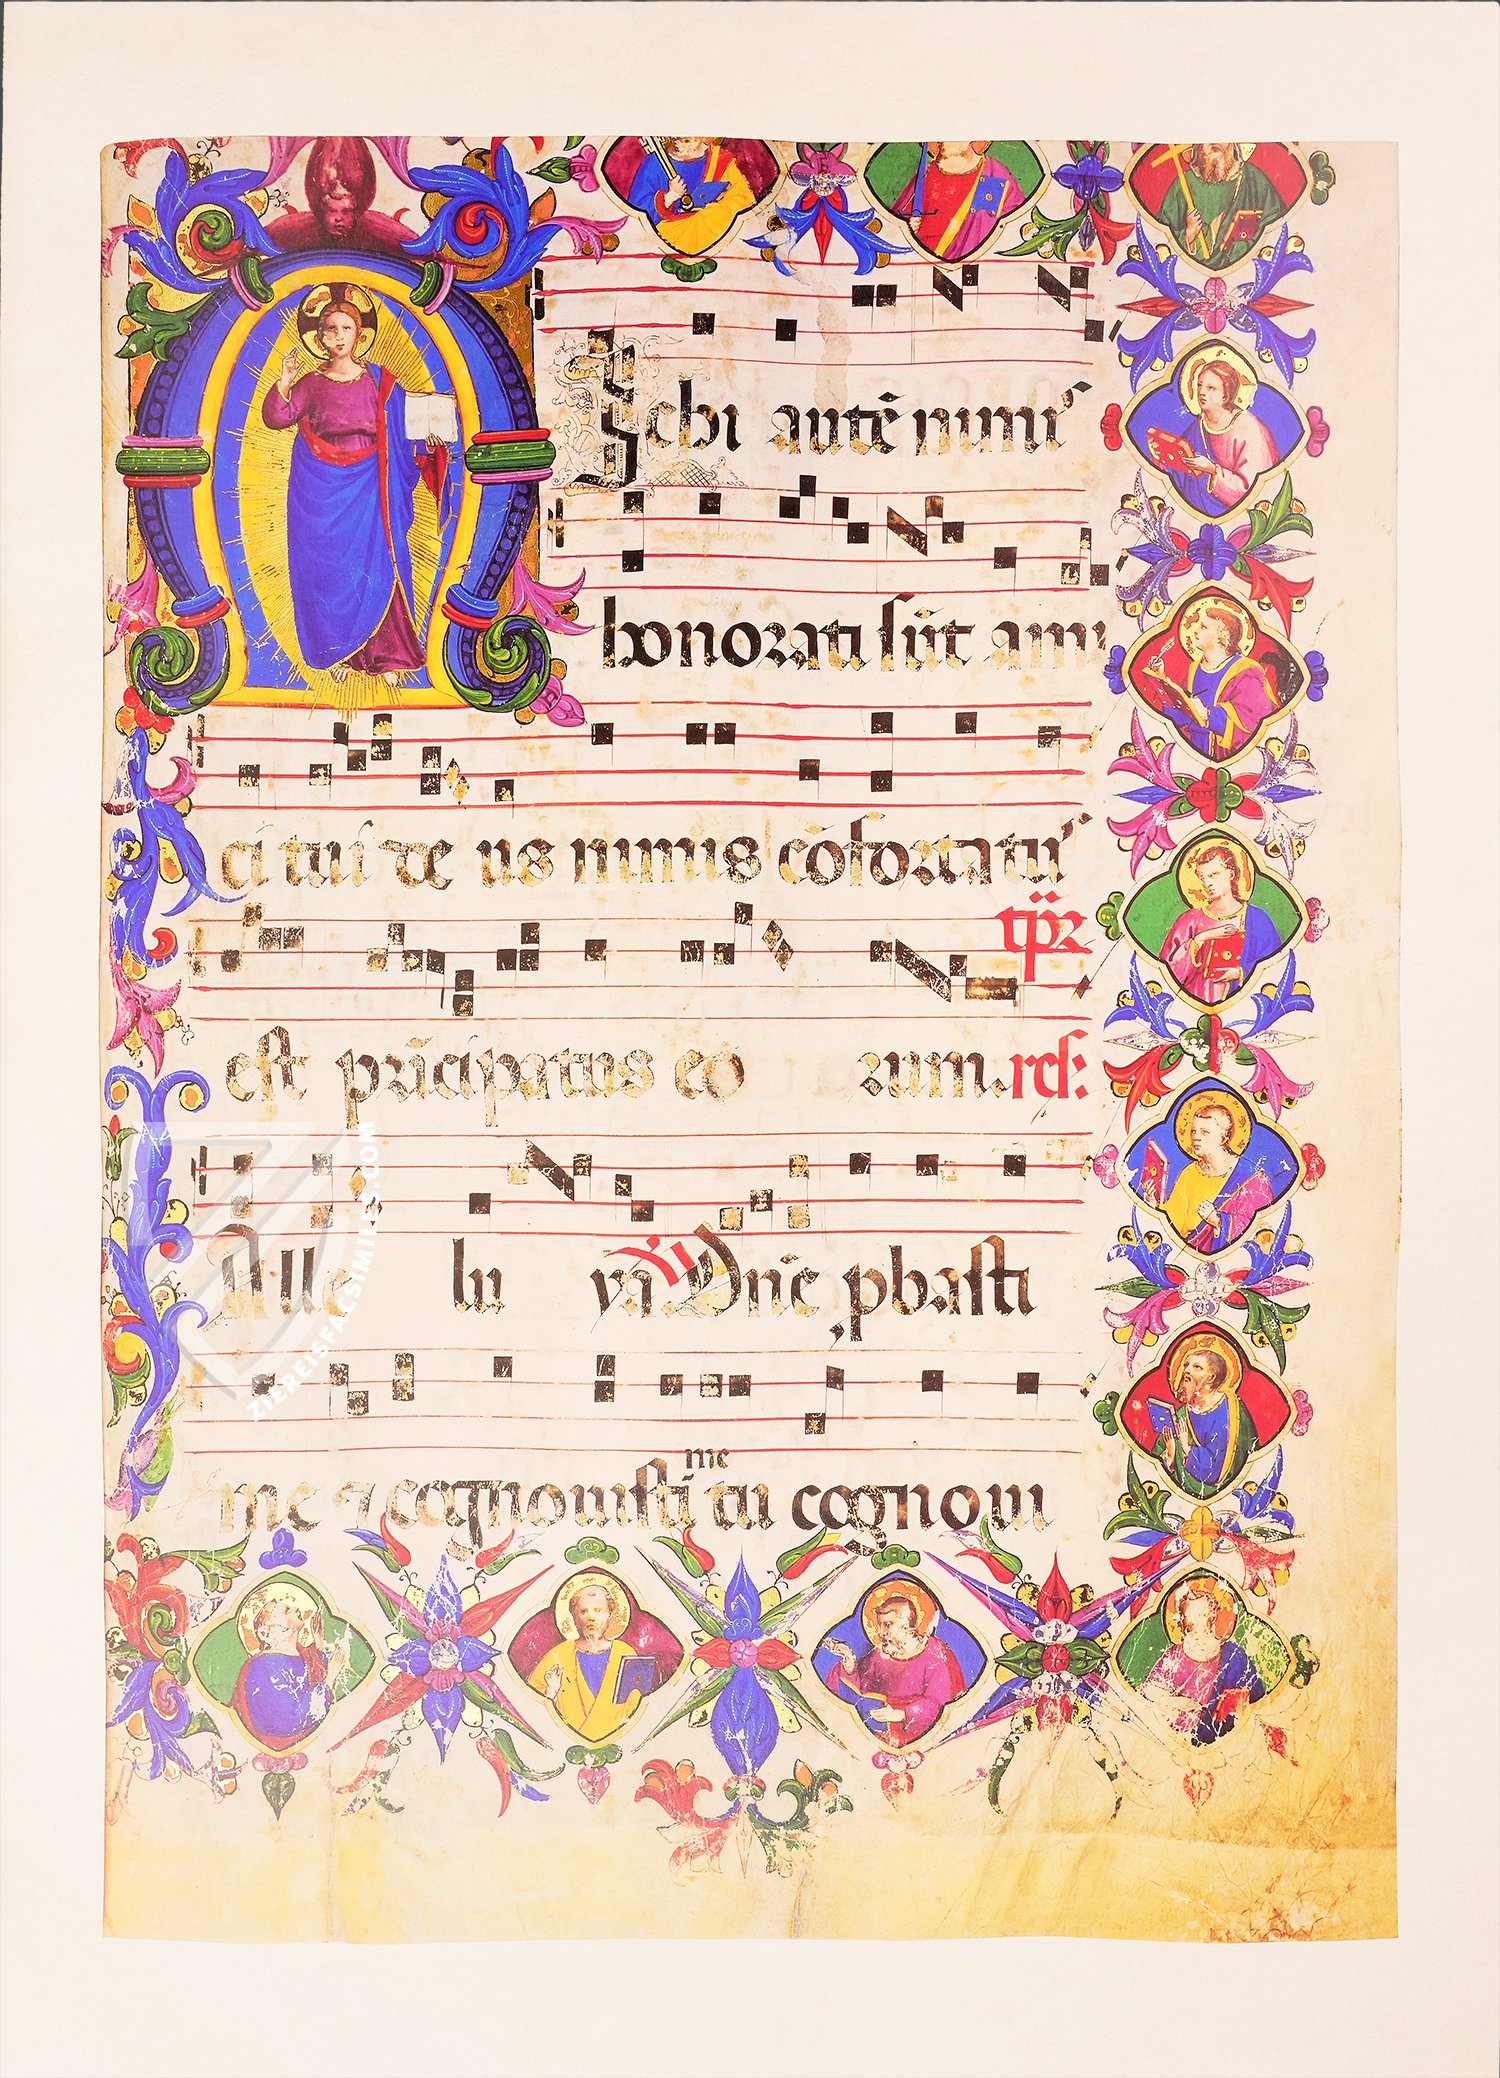 Michi autē nimis
honorati sūt ami
ci tui deus nimis cōfortatus
tp̄r
est prīcipatus eo rum. rck:
Alle lu ya Dn̄e pbasti
me
me ⁊ cognouisti tu cognoui
ZIEREISFACSIMILES.COM